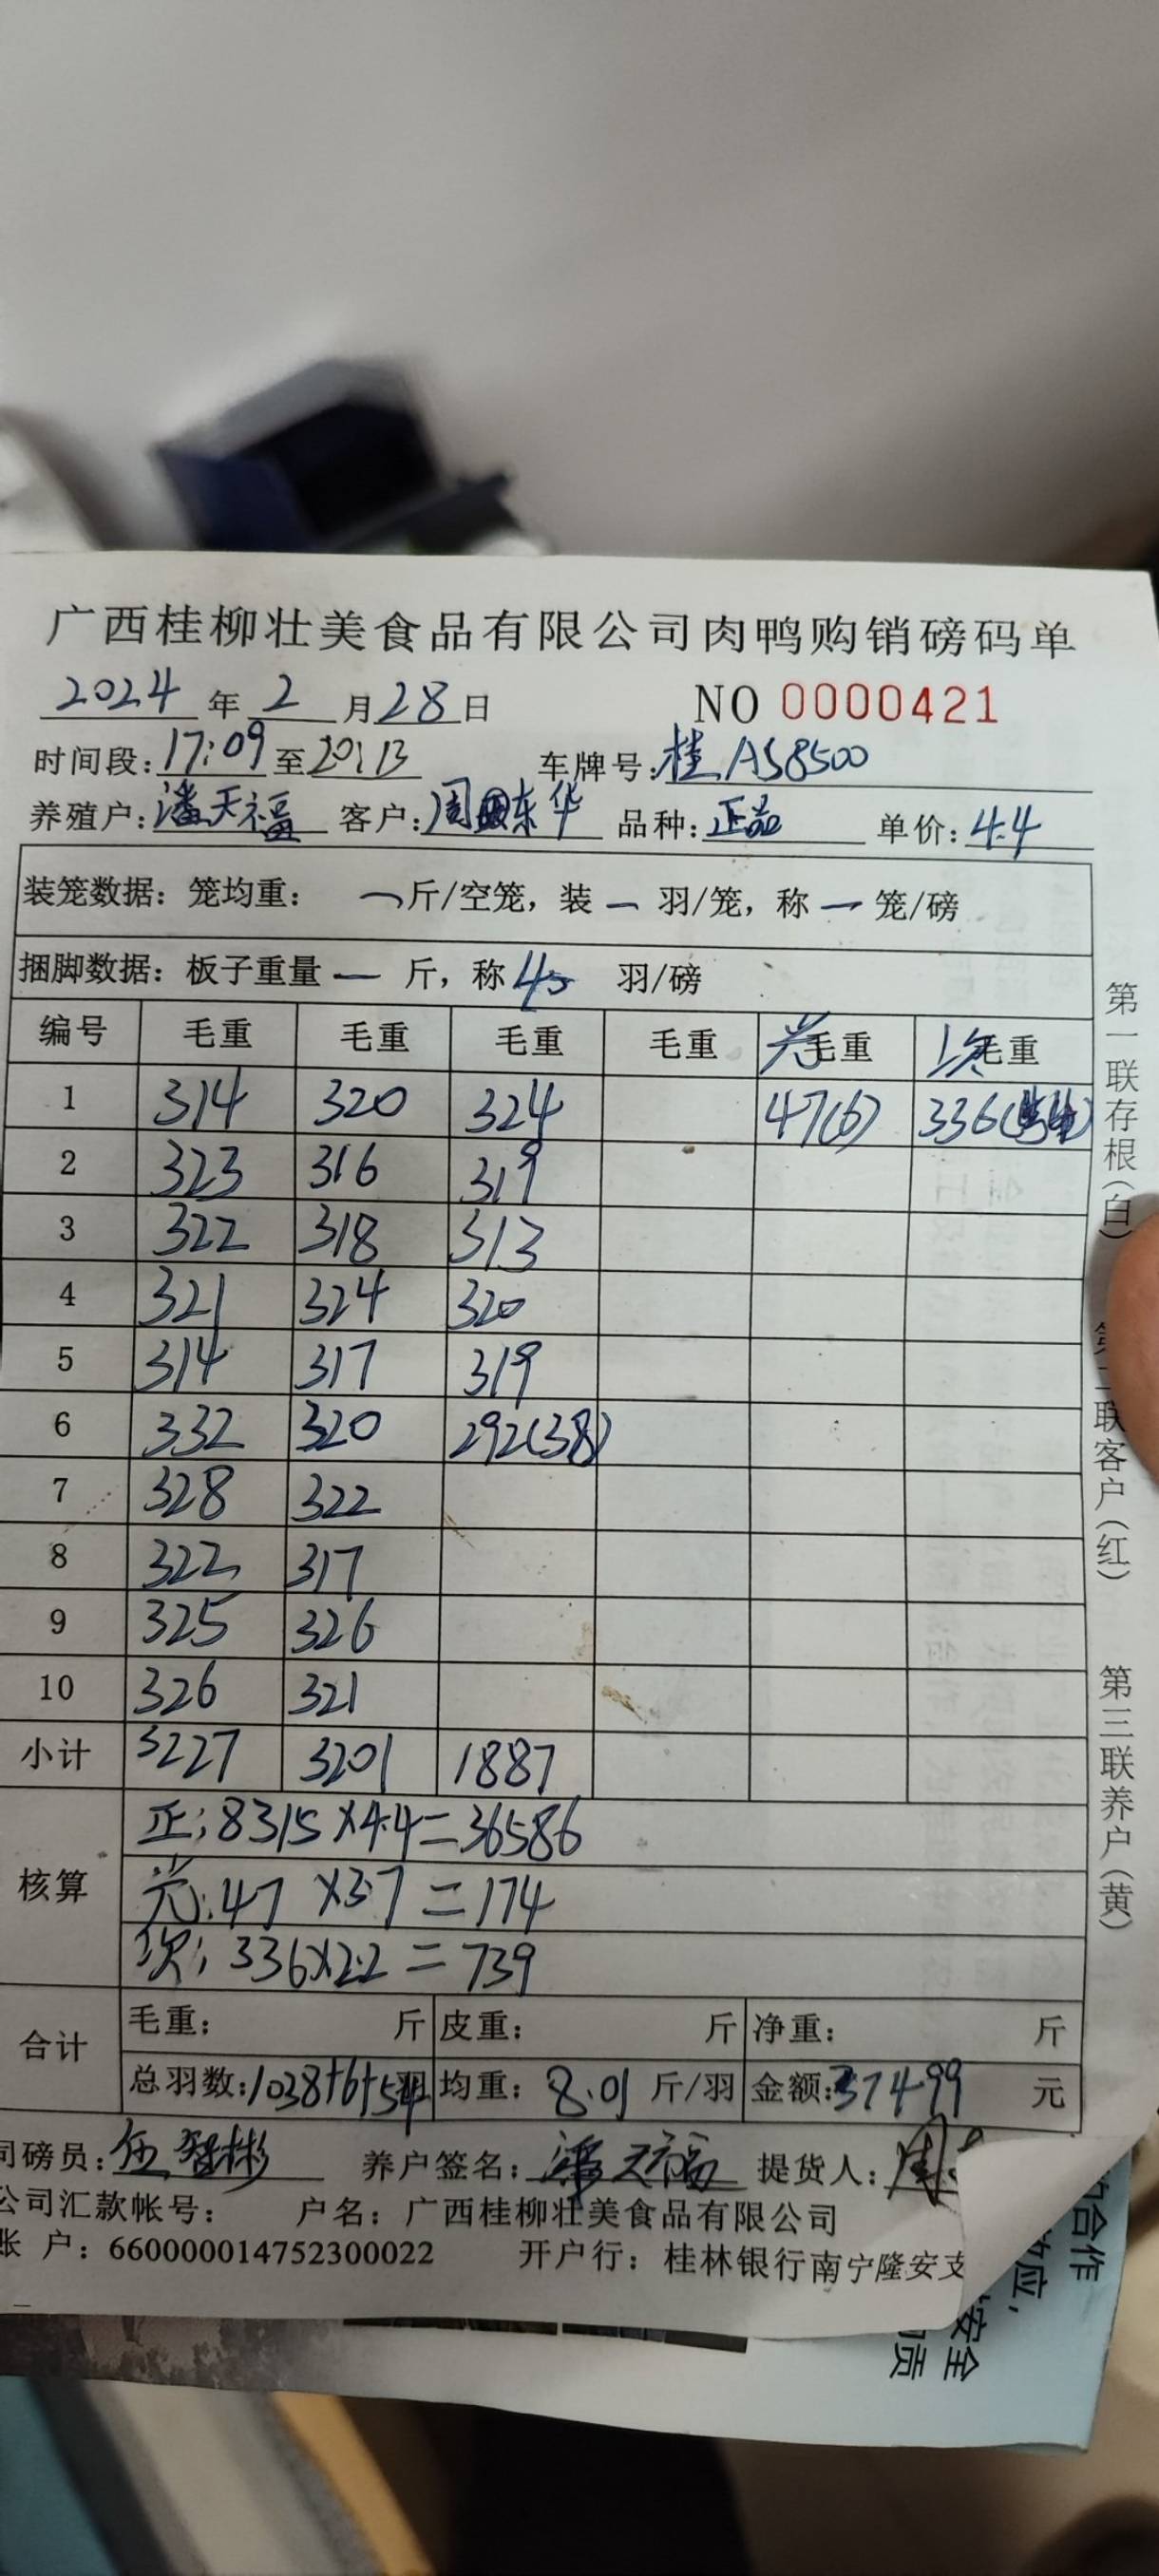 广西桂柳壮美食品有限公司肉鸭购销磅码单
2024 年 2 月 28 日 NO 0000421
时间段：17:09 至 20:13 车牌号：桂AS8500
养殖户：潘天福 客户：周东华 品种：正品 单价：4.4
装笼数据：笼均重： 一斤/空笼，装 一 羽/笼，称 一 笼/磅
捆脚数据：板子重量 一 斤，称 45 羽/磅
编号 毛重 毛重 毛重 毛重 光毛重 次毛重
1 314 320 324 47(6) 336
2 323 316 319
3 322 318 313
4 321 324 320
5 314 317 319
6 332 320 292(38)
7 328 322
8 322 317
9 325 326
10 326 321
小计 3227 3201 1887
核算
正：8315×4.4=36586
光：47 ×3.7 =174
次：336×2.2 = 739
合计
毛重： 斤 皮重： 斤 净重： 斤
总羽数：1038+6+54 均重：8.01 斤/羽 金额：37499 元
司磅员：伍智彬 养户签名：潘天福 提货人：周
公司汇款帐号： 户名：广西桂柳壮美食品有限公司
账 户：660000014752300022 开户行：桂林银行南宁隆安支
第一联存根（白）
第二联客户（红）
第三联养户（黄）
合作
应，
安全
贡